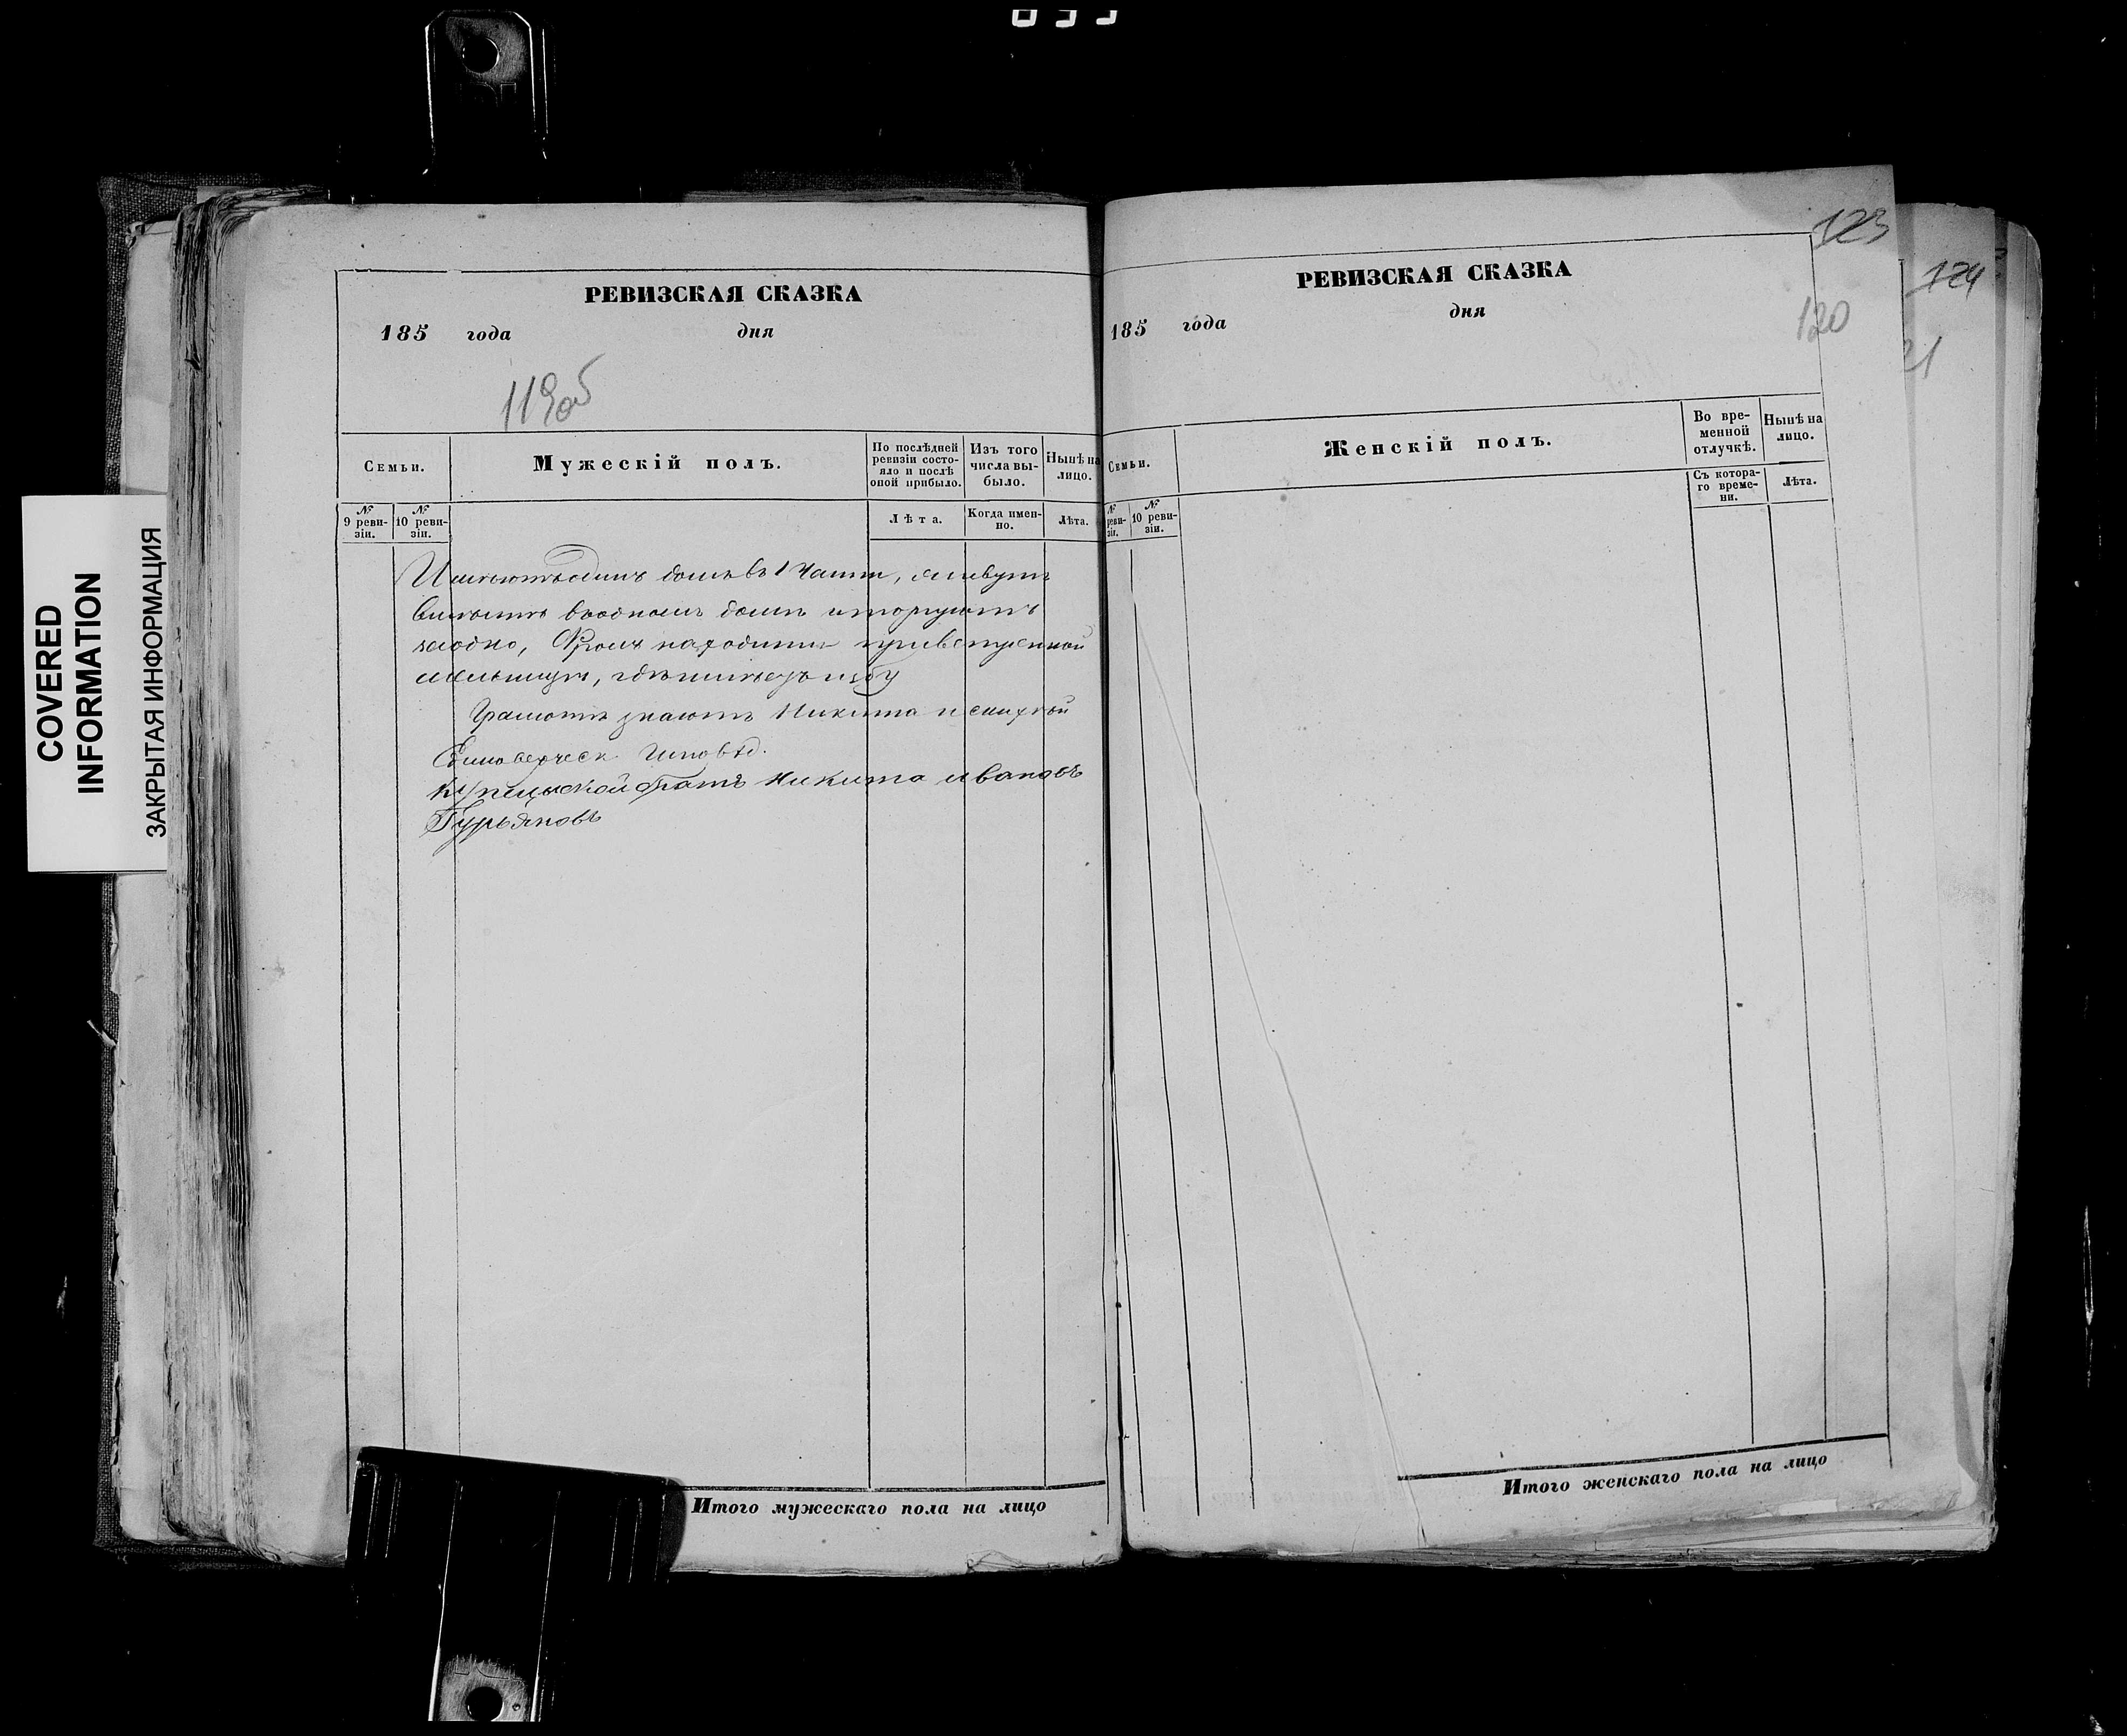 COVERED
INFORMATION
ЗАКРЫТАЯ ИНФОРМАЦИЯ
РЕВИЗСКАЯ СКАЗКА
185 года дня
119об
Семьи.
Мужескій полъ.
По послѣдней
ревизіи состо-
яло и послѣ
оной прибыло.
Изъ того
числа вы-
было.
Нынѣ на
лицо.
№
9 реви-
зіи.
№
10 реви-
зіи.
Лѣта.
Когда имен-
но.
Лѣта.
Имѣютъ одинъ домъ въ 1 Части, живутъ
вмѣстѣ въ одномъ домѣ и торгуютъ
заодно, Кромѣ находится при ветренной
мельницѣ, гдѣ имѣетъ избу
Грамотѣ знаютъ Никита и
Единоверческ. Исповѣд.
Купецкой братъ Никита ивановъ
Гурьяновъ
Итого мужескаго пола на лицо
123
РЕВИЗСКАЯ СКАЗКА
185 года дня
120
Семьи.
Женскій полъ.
Во вре-
менной
отлучкѣ.
Нынѣ на
лицо.
№
реви-
зіи.
№
10 реви-
зіи.
Съ котора-
го време-
ни.
Лѣта.
Итого женскаго пола на лицо
124
21